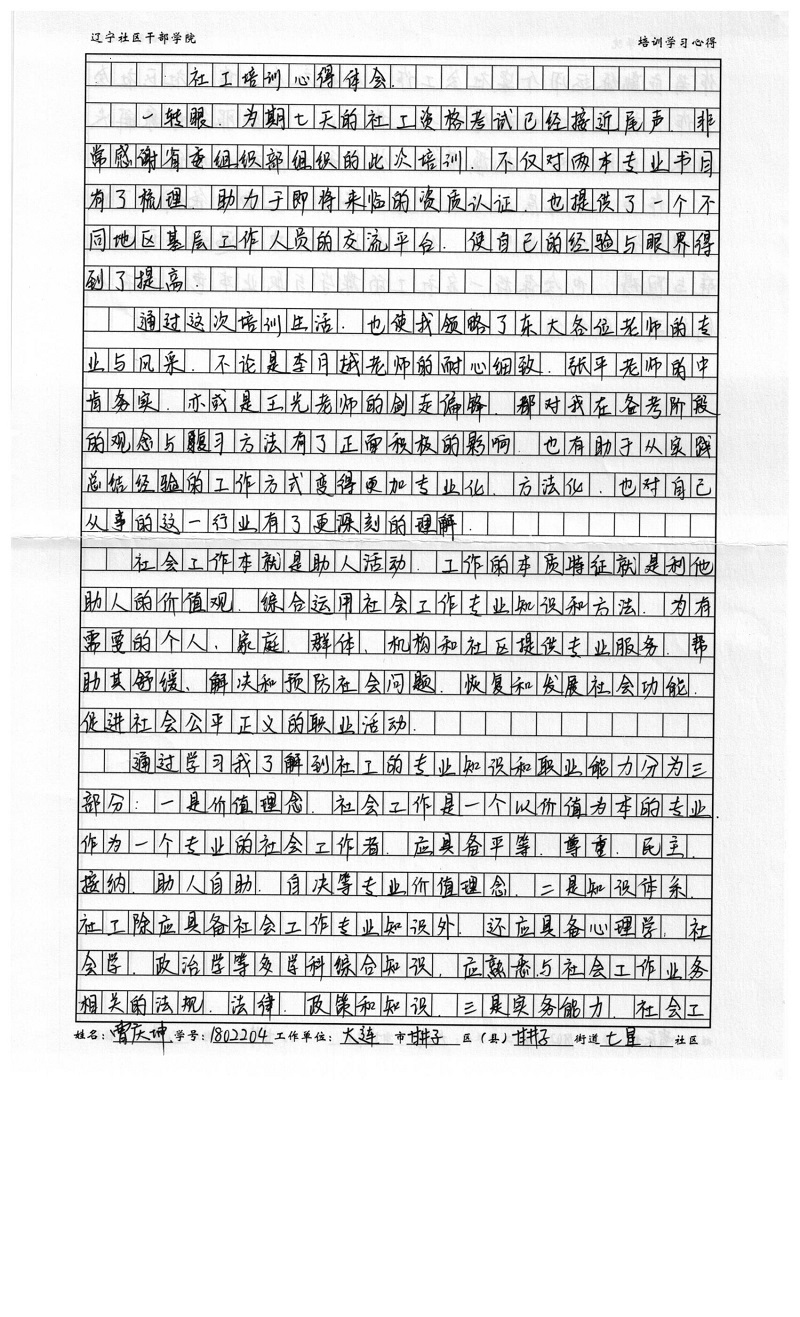 辽宁社区干部学院 培训学习心得
社工培训心得体会.
一转眼.为期七天的社工资格考试已经接近尾声.非
常感谢省委组织部组织的此次培训.不仅对两本专业书目
有了梳理.助力于即将来临的资质认证.也提供了一个不
同地区基层工作人员的交流平台.使自己的经验与眼界得
到了提高.
通过这次培训生活.也使我领略了东大各位老师的专
业与风采.不论是李月越老师的耐心细致.张平老师的中
肯务实.亦或是王光老师的剑走偏锋.都对我在备考阶段
的观念与复习方法有了正面积极的影响.也有助于从实践
总结经验的工作方式变得更加专业化.方法化.也对自己
从事的这一行业有了更深刻的理解.
社会工作本就是助人活动.工作的本质特征就是利他
助人的价值观.综合运用社会工作专业知识和方法.为有
需要的个人、家庭.群体、机构和社区提供专业服务.帮
助其舒缓、解决和预防社会问题.恢复和发展社会功能.
促进社会公平正义的职业活动.
通过学习我了解到社工的专业知识和职业能力分为三
部分:一是价值理念.社会工作是一个以价值为本的专业.
作为一个专业的社会工作者.应具备平等.尊重.民主.
接纳.助人自助.自决等专业价值理念.二是知识体系.
社工除应具备社会工作专业知识外.还应具备心理学.社
会学.政治学等多学科综合知识.应熟悉与社会工作业务
相关的法规.法律.政策和知识.三是实务能力.社会工
姓名:曹庆坤 学号:1802204 工作单位:大连 市 甘井子 区(县) 甘井子 街道 七星 社区